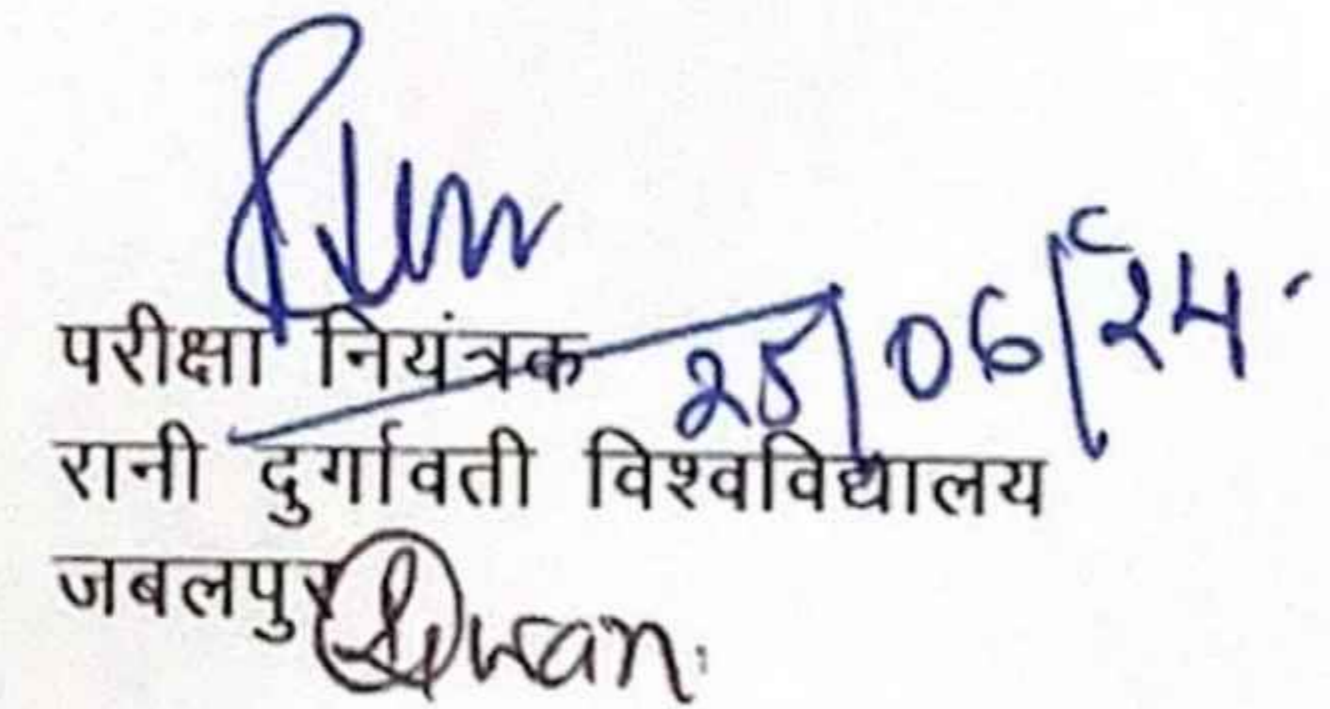 परीक्षा नियंत्रक
25/06/24
रानी दुर्गावती विश्वविद्यालय
जबलपुर